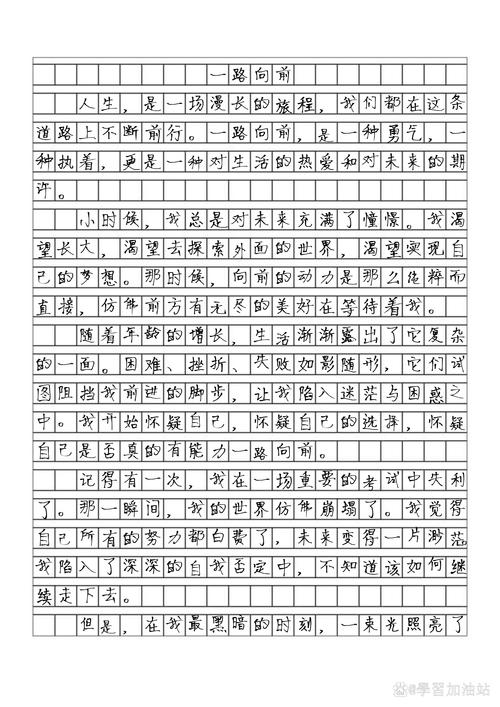 一路向前
人生，是一场漫长的旅程，我们都在这条
道路上不断前行。一路向前，是一种勇气，一
种执着，更是一种对生活的热爱和对未来的期
许。
小时候，我总是对未来充满了憧憬。我渴
望长大，渴望去探索外面的世界，渴望实现自
己的梦想。那时候，向前的动力是那么纯粹而
直接，仿佛前方有无尽的美好在等待着我。
随着年龄的增长，生活渐渐露出了它复杂
的一面。困难、挫折、失败如影随形，它们试
图阻挡我前进的脚步，让我陷入迷茫与困惑之
中。我开始怀疑自己，怀疑自己的选择，怀疑
自己是否真的有能力一路向前。
记得有一次，我在一场重要的考试中失利
了。那一瞬间，我的世界仿佛崩塌了。我觉得
自己所有的努力都白费了，未来变得一片渺茫
我陷入了深深的自我否定中，不知道该如何继
续走下去。
但是，在我最黑暗的时刻，一束光照亮了
@學習加油站